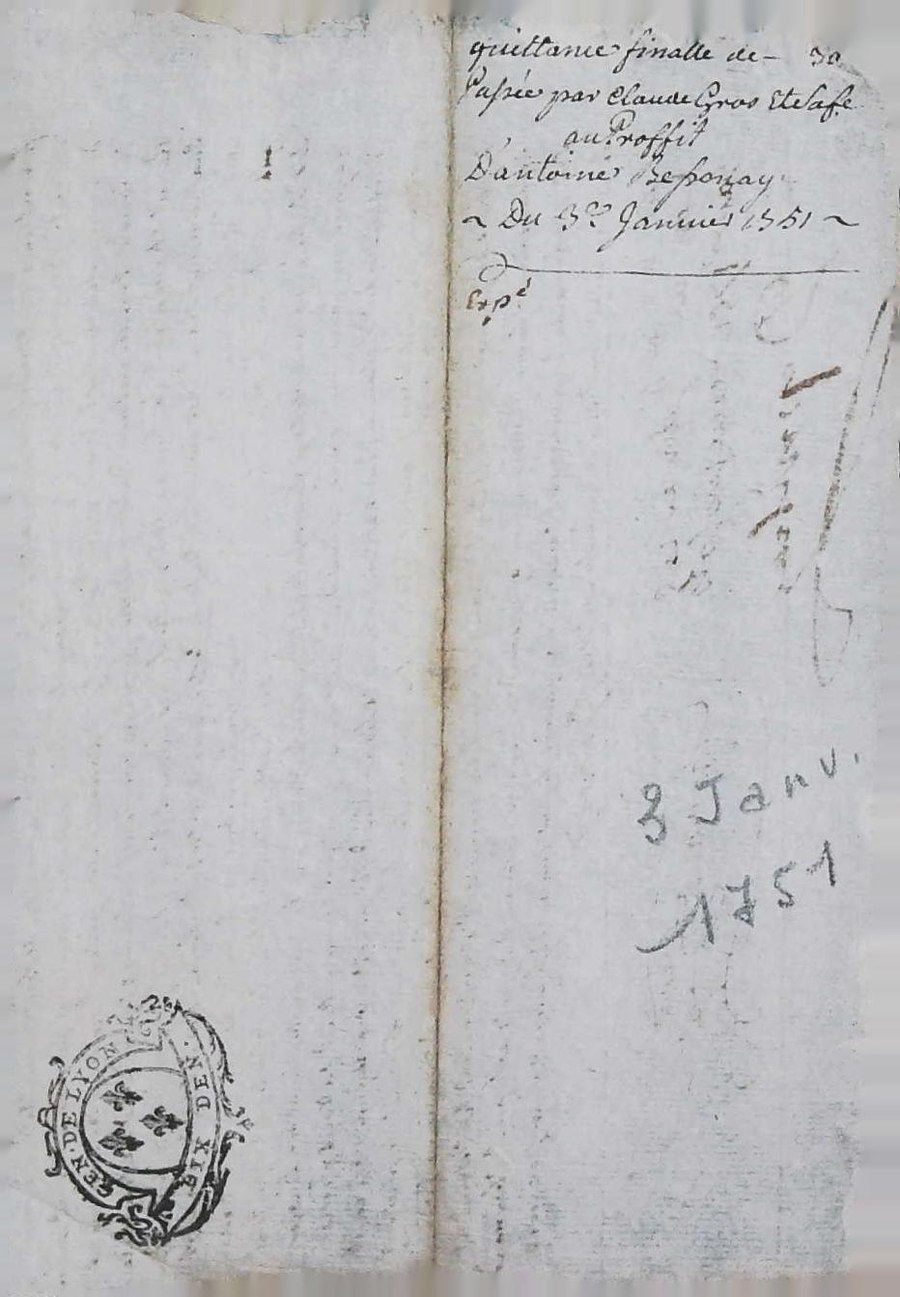 quittance finalle de - 30
Passée par Claude Gros Et Safe
au Proffit
D'antoine Bessonay
~ Du 3e Janvier 1751 ~
Expé
3 Janv.
1751
GEN · DE LYON
SIX DEN ·